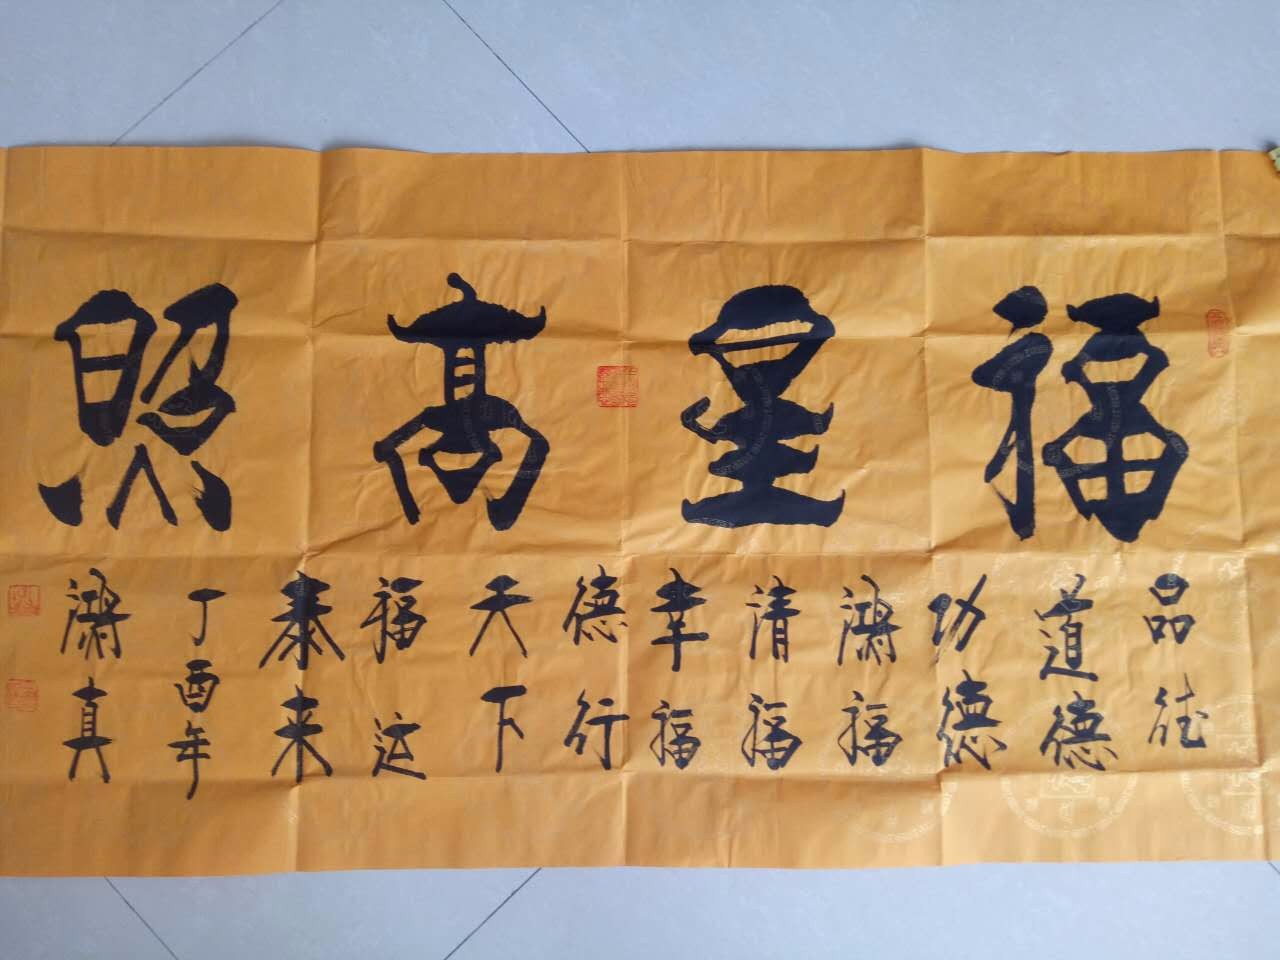 福星高照
品德
道德
功德
鸿福
清福
幸福
德行
天下
福运
泰来
丁酉年
鸿真